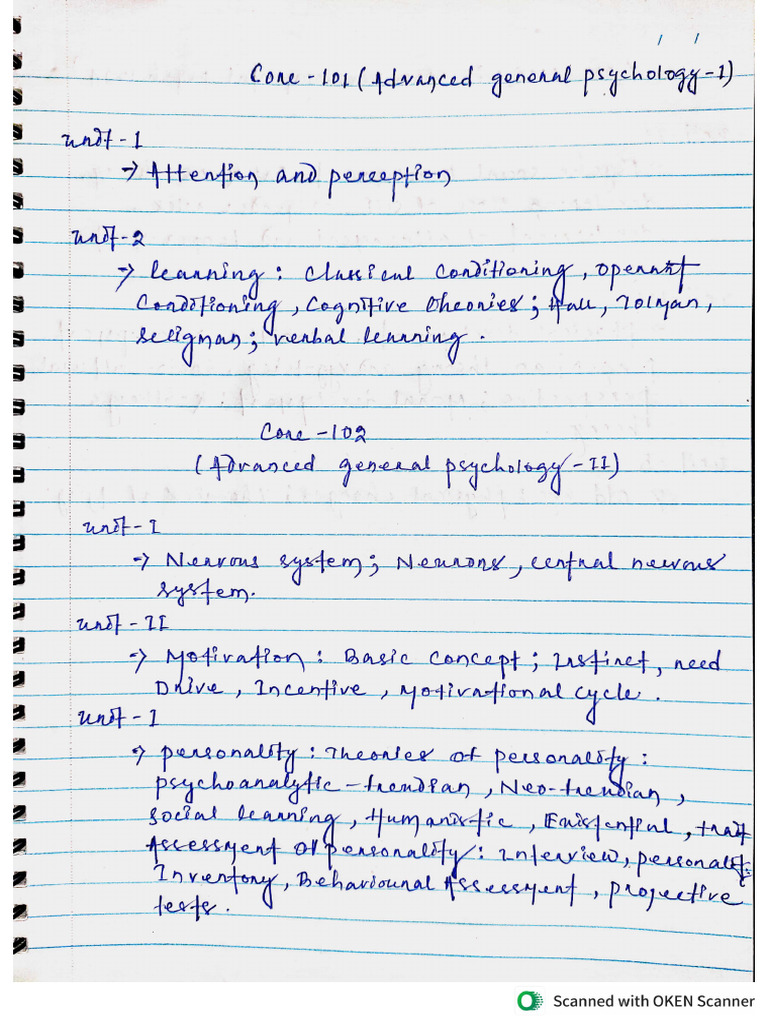 Core-101 (Advanced general psychology-I)
unit-1
→ Attention and perception
unit-2
→ learning: Classical Conditioning, Operant
Conditioning, Cognitive theories; Hall, Tolman,
Seligman; verbal learning.
Core-102
(Advanced general psychology-II)
unit-I
→ Nervous system; Neurons, central nervous
system.
unit-II
→ Motivation: Basic Concept; Instinct, need
Drive, Incentive, Motivational cycle.
unit-I
→ personality: Theories of personality:
psychoanalytic-freudian, Neo-freudian,
social learning, Humanistic, Existential, trait
Assessment of personality: Interview, personality
Inventory, Behavioural Assessment, projective
tests.
Scanned with OKEN Scanner